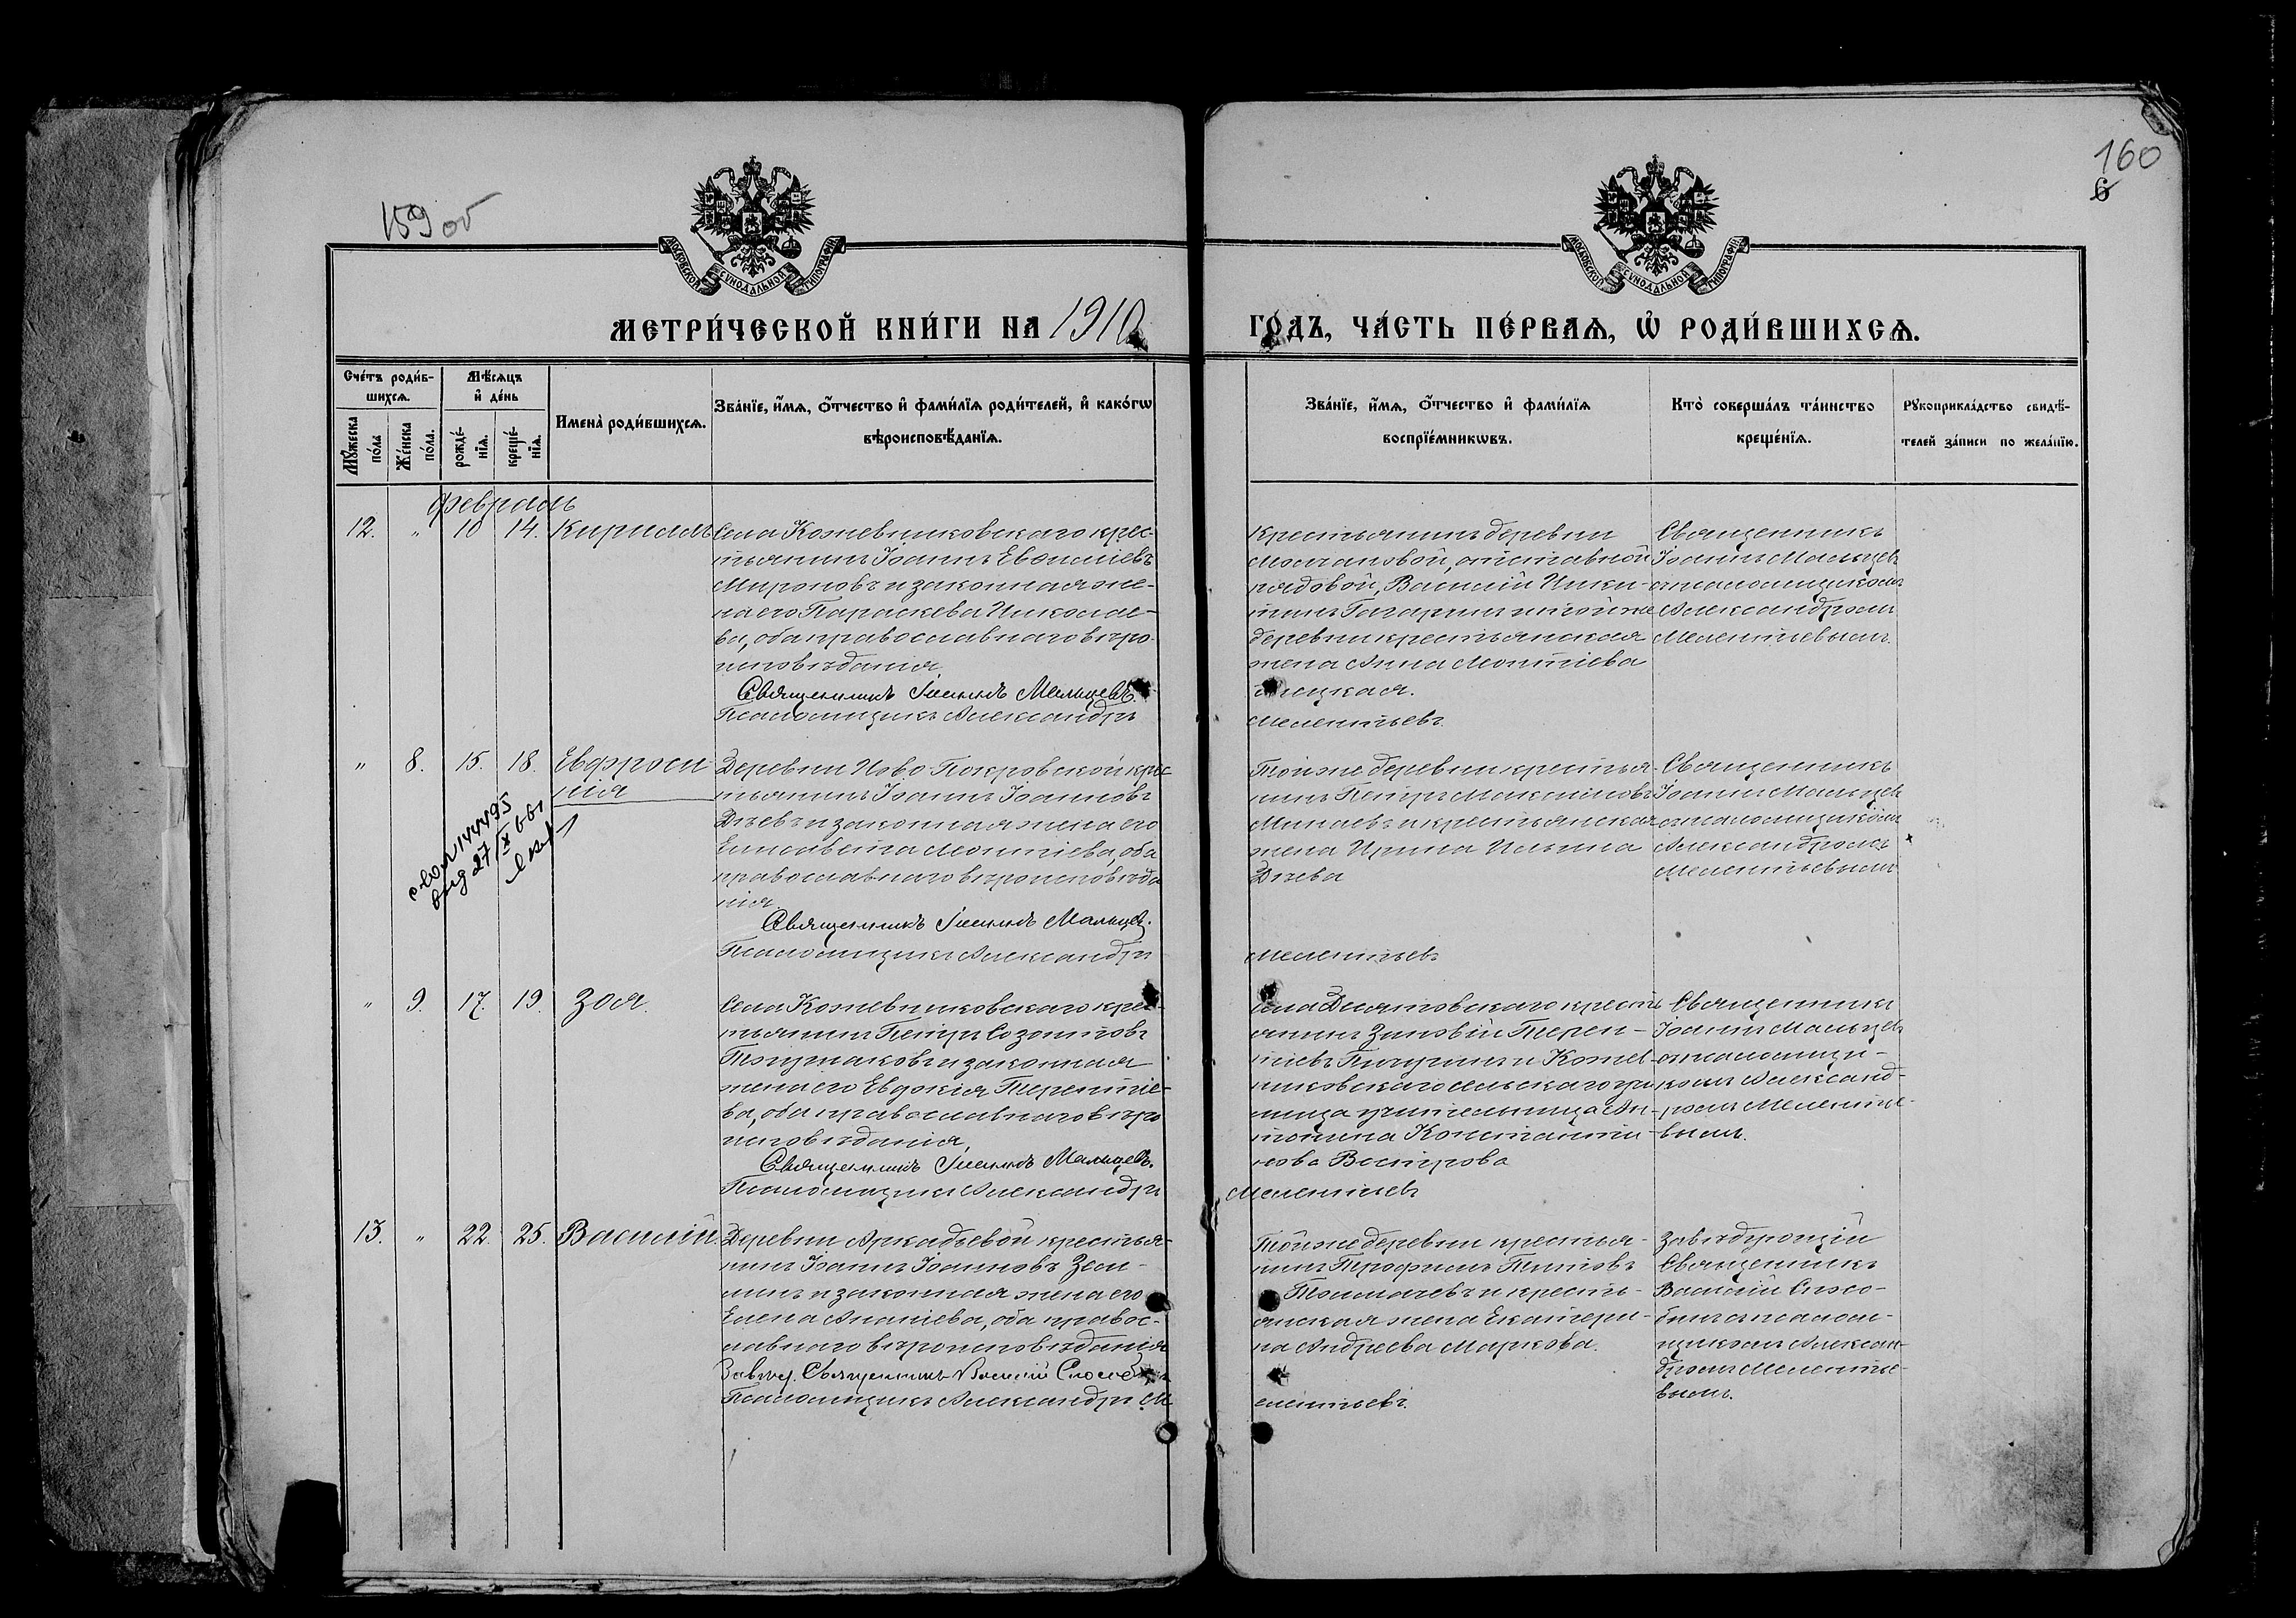 159 об
160
6
МОСКОВСКОЙ СѴНОДАЛЬНОЙ ТИПОГРАФІИ
МОСКОВСКОЙ СѴНОДАЛЬНОЙ ТИПОГРАФІИ
МЕТРИ́ЧЕСКОЙ КНИ́ГИ НА 1910
ГО́ДЪ, ЧА́СТЬ ПЕ́РВАѦ, Ѡ҆ РОДИ́ВШИХСѦ.
Сче́тъ роди́в-
шихсѧ.
Мѹ́жеска
по́ла
Же́нска
по́ла.
Мѣ́сѧцъ
и҆ де́нь
рожде́-
нїѧ.
креще́-
нїѧ.
Имена̀ роди́вшихсѧ.
Зва́нїе, и҆́мѧ, ѻ҆́тчество и҆ фами́лїѧ роди́телей, и҆ како́гѡ
вѣроисповѣ́данїѧ.
Зва́нїе, и҆́мѧ, ѻ҆́тчество и҆ фами́лїѧ
воспрїе́мникѡвъ.
Кто̀ соверша́лъ та́инство
креще́нїѧ.
Рѹкоприкла́дство свидѣ́-
телей за́писи по жела́нїю.
Февраль
12. " 10 14. Кириллъ
Села Кожевниковскаго крес-
тьянинъ Іоаннъ Евѳиміевъ
Мироновъ и законная же-
на его Параскева Николае-
ва, оба православнаго вѣро-
исповѣданія
Священникъ Іоаннъ Мальцевъ.
Псаломщикъ Александръ
Крестьянинъ деревни
отставной
рядовой, Василій Ники-
тинъ Гагаринъ и той же
деревни крестьянская
жена Анна Монтіева
Мелентьевъ.
Священникъ
Іоаннъ Мальцевъ
съ псаломщикомъ
Александромъ
Мелентьевымъ.
" 8. 15. 18. Евфроси
нія
Деревни Ново-Покровской крес
тьянинъ Іоаннъ Іоанновъ
Дѣевъ и законная жена его
Елисавета Монтіева, оба
православнаго вѣроисповѣда
нія.
Священникъ Іоаннъ Мальцевъ.
Псаломщикъ Александръ
27/IX
Той же деревни крестья-
нинъ Петръ Максимовъ
Минаевъ и крестьянская
жена Ирина Ильина
Дѣева
Мелентьевъ
Священникъ
Іоаннъ Мальцевъ
съ псаломщикомъ
Александромъ
Мелентьевымъ
" 9. 17. 19. Зоя.
Села Кожевниковскаго крес-
тьянинъ Петръ Созонтовъ
и законная
жена его Евдокія Терентіе-
ва, оба православнаго вѣро
исповѣданія,
Священникъ Іоаннъ Мальцевъ.
Псаломщикъ Александръ
Села крестья
янинъ Зиновій Терен-
тіевъ и Кожев-
никовскаго сельскаго учи
лища учительница Ан-
тонина Константи-
нова Вострова
Мелентьевъ
Священникъ
Іоаннъ Мальцевъ
съ псаломщи-
комъ Александ-
ромъ Меленть-
вымъ.
13. " 22. 25. Василій.
Деревни Аркадьевой крестья-
нинъ Іоаннъ Іоанновъ Зем-
нинъ и законная жена его
Елена Ананіева, оба правос-
лавнаго вѣроисповѣданія
Завѣд. Священникъ Василій
Псаломщикъ Александръ М
Той же деревни крестья-
нинъ Перфилъ Титовъ
Толмачевъ и кресть-
янская жена Екатери-
на Андреева Маркова.
елентьевъ.
Завѣдующій
Священникъ
Василій Спосо-
бинъ съ псалом-
щикомъ Алексан-
дромъ Меленть-
вымъ.